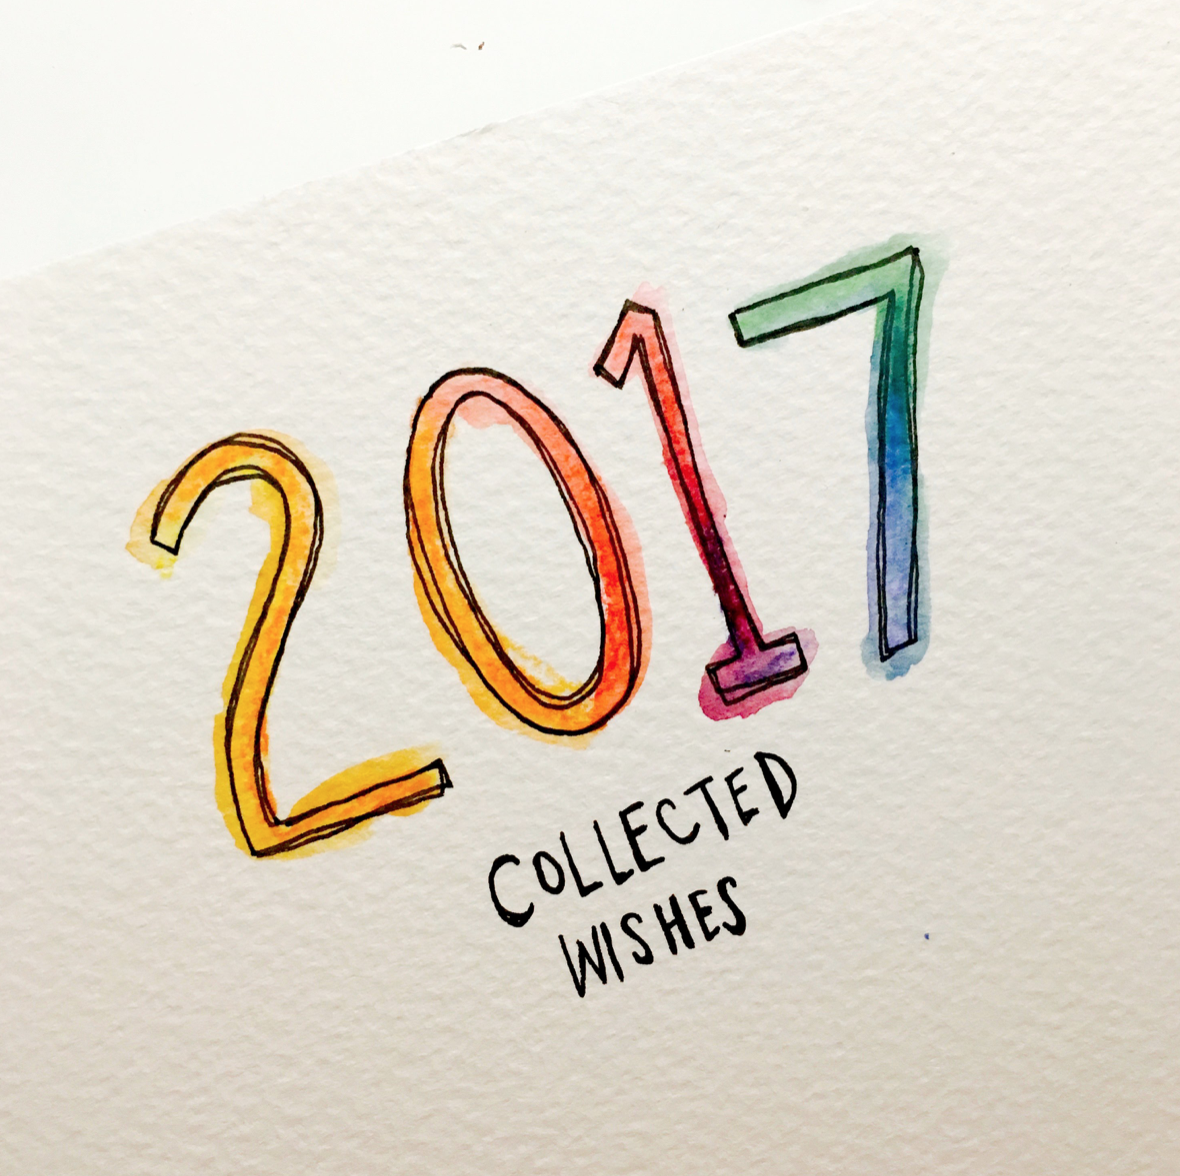 2017
COLLECTED
WISHES